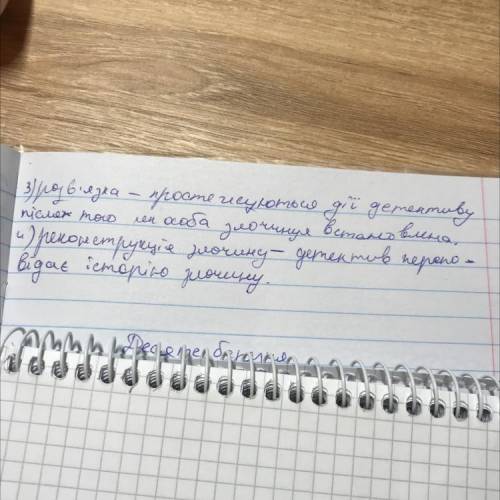 3) розв'язка – простежуються дії детективу
після того як особа злочинця встановлена.
4) реконструкція злочину – детектив перепо-
відає історію злочину.